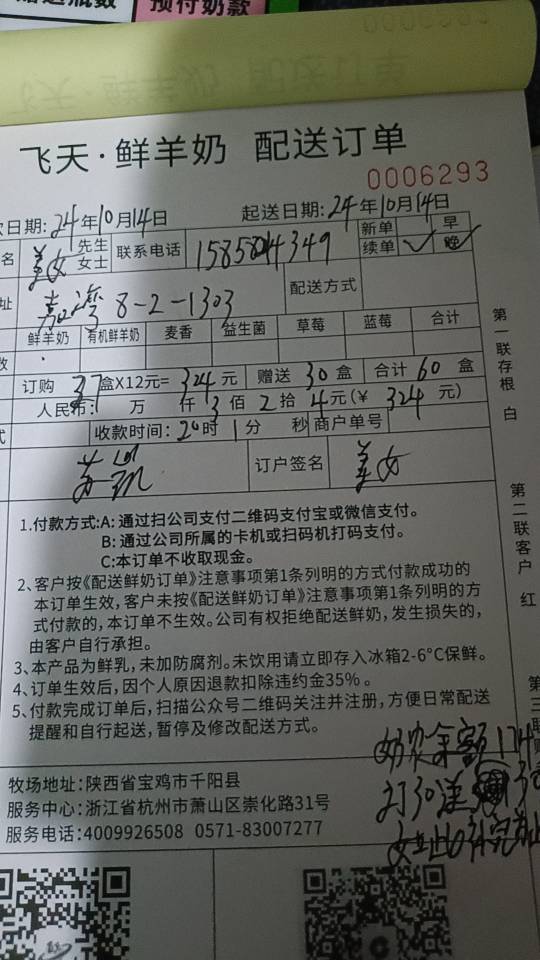 预付奶款
飞天·鲜羊奶 配送订单
0006293
日期: 24年10月14日 起送日期: 24年10月14日
名 美女 先生 女士 联系电话 新单 续单 ✓ 早 晚
址 8-2-1303 配送方式
鲜羊奶 有机鲜羊奶 麦香 益生菌 草莓 蓝莓 合计
数
订购 盒X12元= 324 元 赠送 30 盒 合计 60 盒
人民币: 万 仟 3 佰 2 拾 4 元(¥ 324 元)
式 收款时间: 20时 1分 秒 商户单号
订户签名 美女
第一联存根 白
第二联客户 红
1.付款方式:A: 通过扫公司支付二维码支付宝或微信支付。
B: 通过公司所属的卡机或扫码机打码支付。
C:本订单不收取现金。
2、客户按《配送鲜奶订单》注意事项第1条列明的方式付款成功的
本订单生效, 客户未按《配送鲜奶订单》注意事项第1条列明的方
式付款的, 本订单不生效。公司有权拒绝配送鲜奶, 发生损失的,
由客户自行承担。
3、本产品为鲜乳, 未加防腐剂。未饮用请立即存入冰箱2-6°C保鲜。
4、订单生效后, 因个人原因退款扣除违约金35%。
5、付款完成订单后, 扫描公众号二维码关注并注册, 方便日常配送
提醒和自行起送, 暂停及修改配送方式。
余额 174
订30送
牧场地址: 陕西省宝鸡市千阳县
服务中心: 浙江省杭州市萧山区崇化路31号
服务电话: 4009926508 0571-83007277